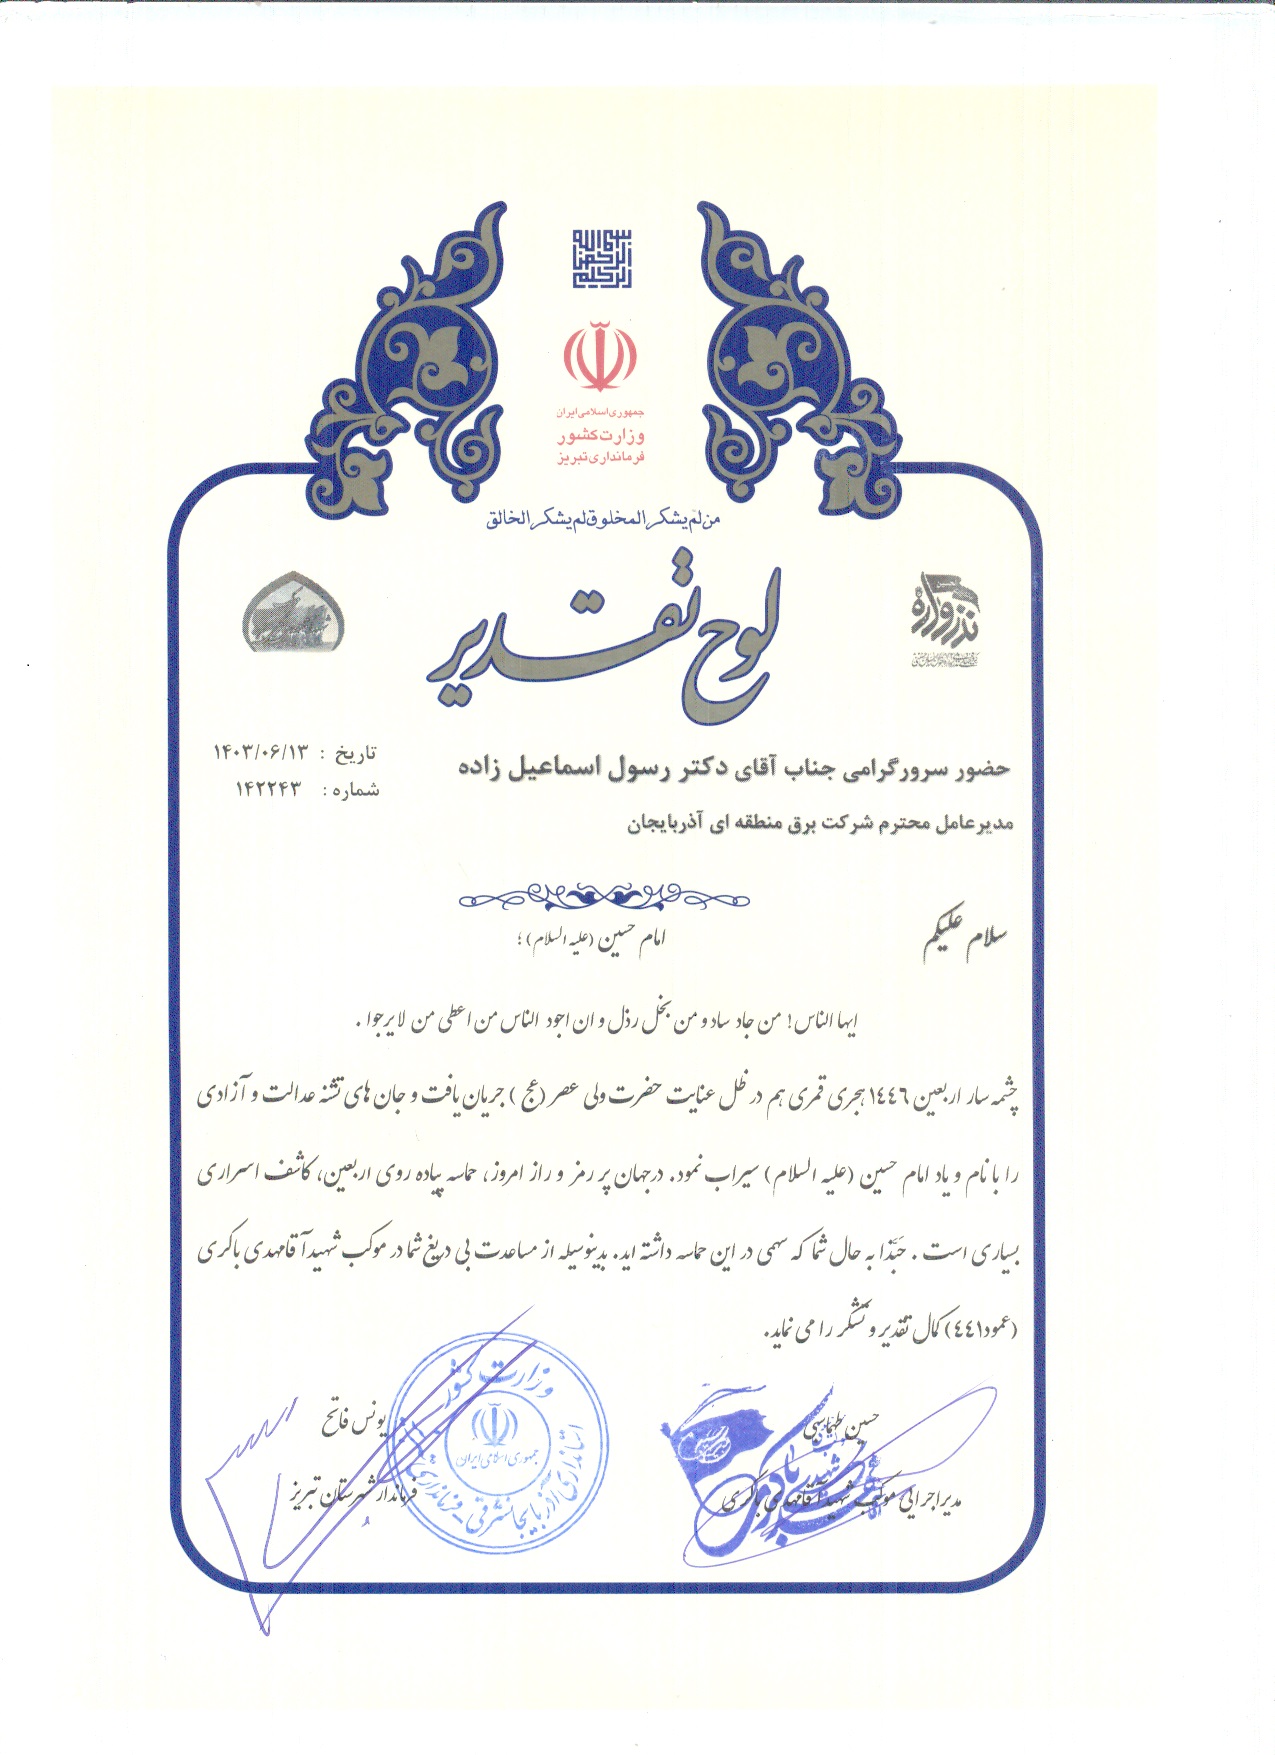 بسم الله
الرحمن
الرحیم
جمهوری اسلامی ایران
وزارت کشور
فرمانداری تبریز
من لم یشکر المخلوق لم یشکر الخالق
لوح تقدیر
نذرواره
تاریخ : ۱۴۰۳/۰۶/۱۳
شماره : ۱۴۲۲۴۳
حضور سرورگرامی جناب آقای دکتر رسول اسماعیل زاده
مدیرعامل محترم شرکت برق منطقه ای آذربایجان
سلام علیکم
امام حسین (علیه السلام) ؛
ایها الناس! من جاد ساد و من بخل رذل و ان اجود الناس من اعطی من لا یرجوا .
چشمه سار اربعین ١٤٤٦ هجری قمری هم در ظل عنایت حضرت ولی عصر (عج ) جریان یافت و جان های تشنه عدالت و آزادی
را با نام و یاد امام حسین (علیه السلام) سیراب نمود. درجهان پر رمز و راز امروز، حماسه پیاده روی اربعین، کاشف اسراری
بسیاری است . حبّذا به حال شما که سهمی در این حماسه داشته اید. بدینوسیله از مساعدت بی دریغ شما در موکب شهید آقامهدی باکری
(عمود٤٤١) کمال تقدیر و تشکر را می نماید.
حسین طهماسبی
مدیر اجرایی موکب شهید آقامهدی باکری
یونس فاتح
فرماندار شهرستان تبریز
وزارت کشور
جمهوری اسلامی ایران
استانداری آذربایجانشرقی - فرمانداری